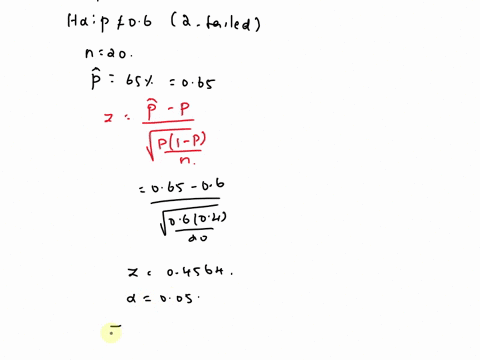 Ha: p ≠ 0.6 (2-tailed)
n = 20.
p̂ = 65% = 0.65
z = p̂ - p / √(p(1-p)/n)
= 0.65 - 0.6 / √(0.6(0.4)/20)
z = 0.4564.
α = 0.05.